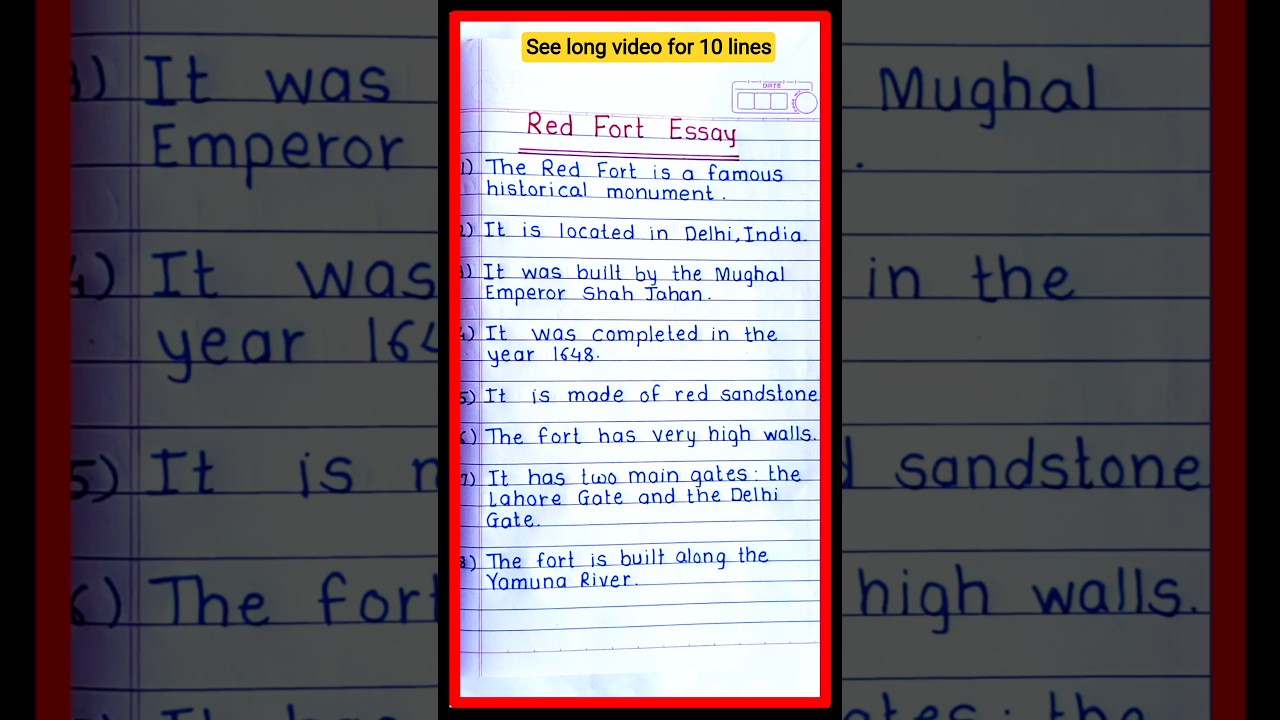 See long video for 10 lines
DATE
Red Fort Essay
1) The Red Fort is a famous
historical monument.
2) It is located in Delhi, India.
3) It was built by the Mughal
Emperor Shah Jahan.
4) It was completed in the
year 1648.
5) It is made of red sandstone
6) The fort has very high walls.
7) It has two main gates : the
Lahore Gate and the Delhi
Gate.
8) The fort is built along the
Yamuna River.
3) It was
Mughal
Emperor
.
4) It was
in the
year 164
5) It is
sandstone
6) The for
high walls.